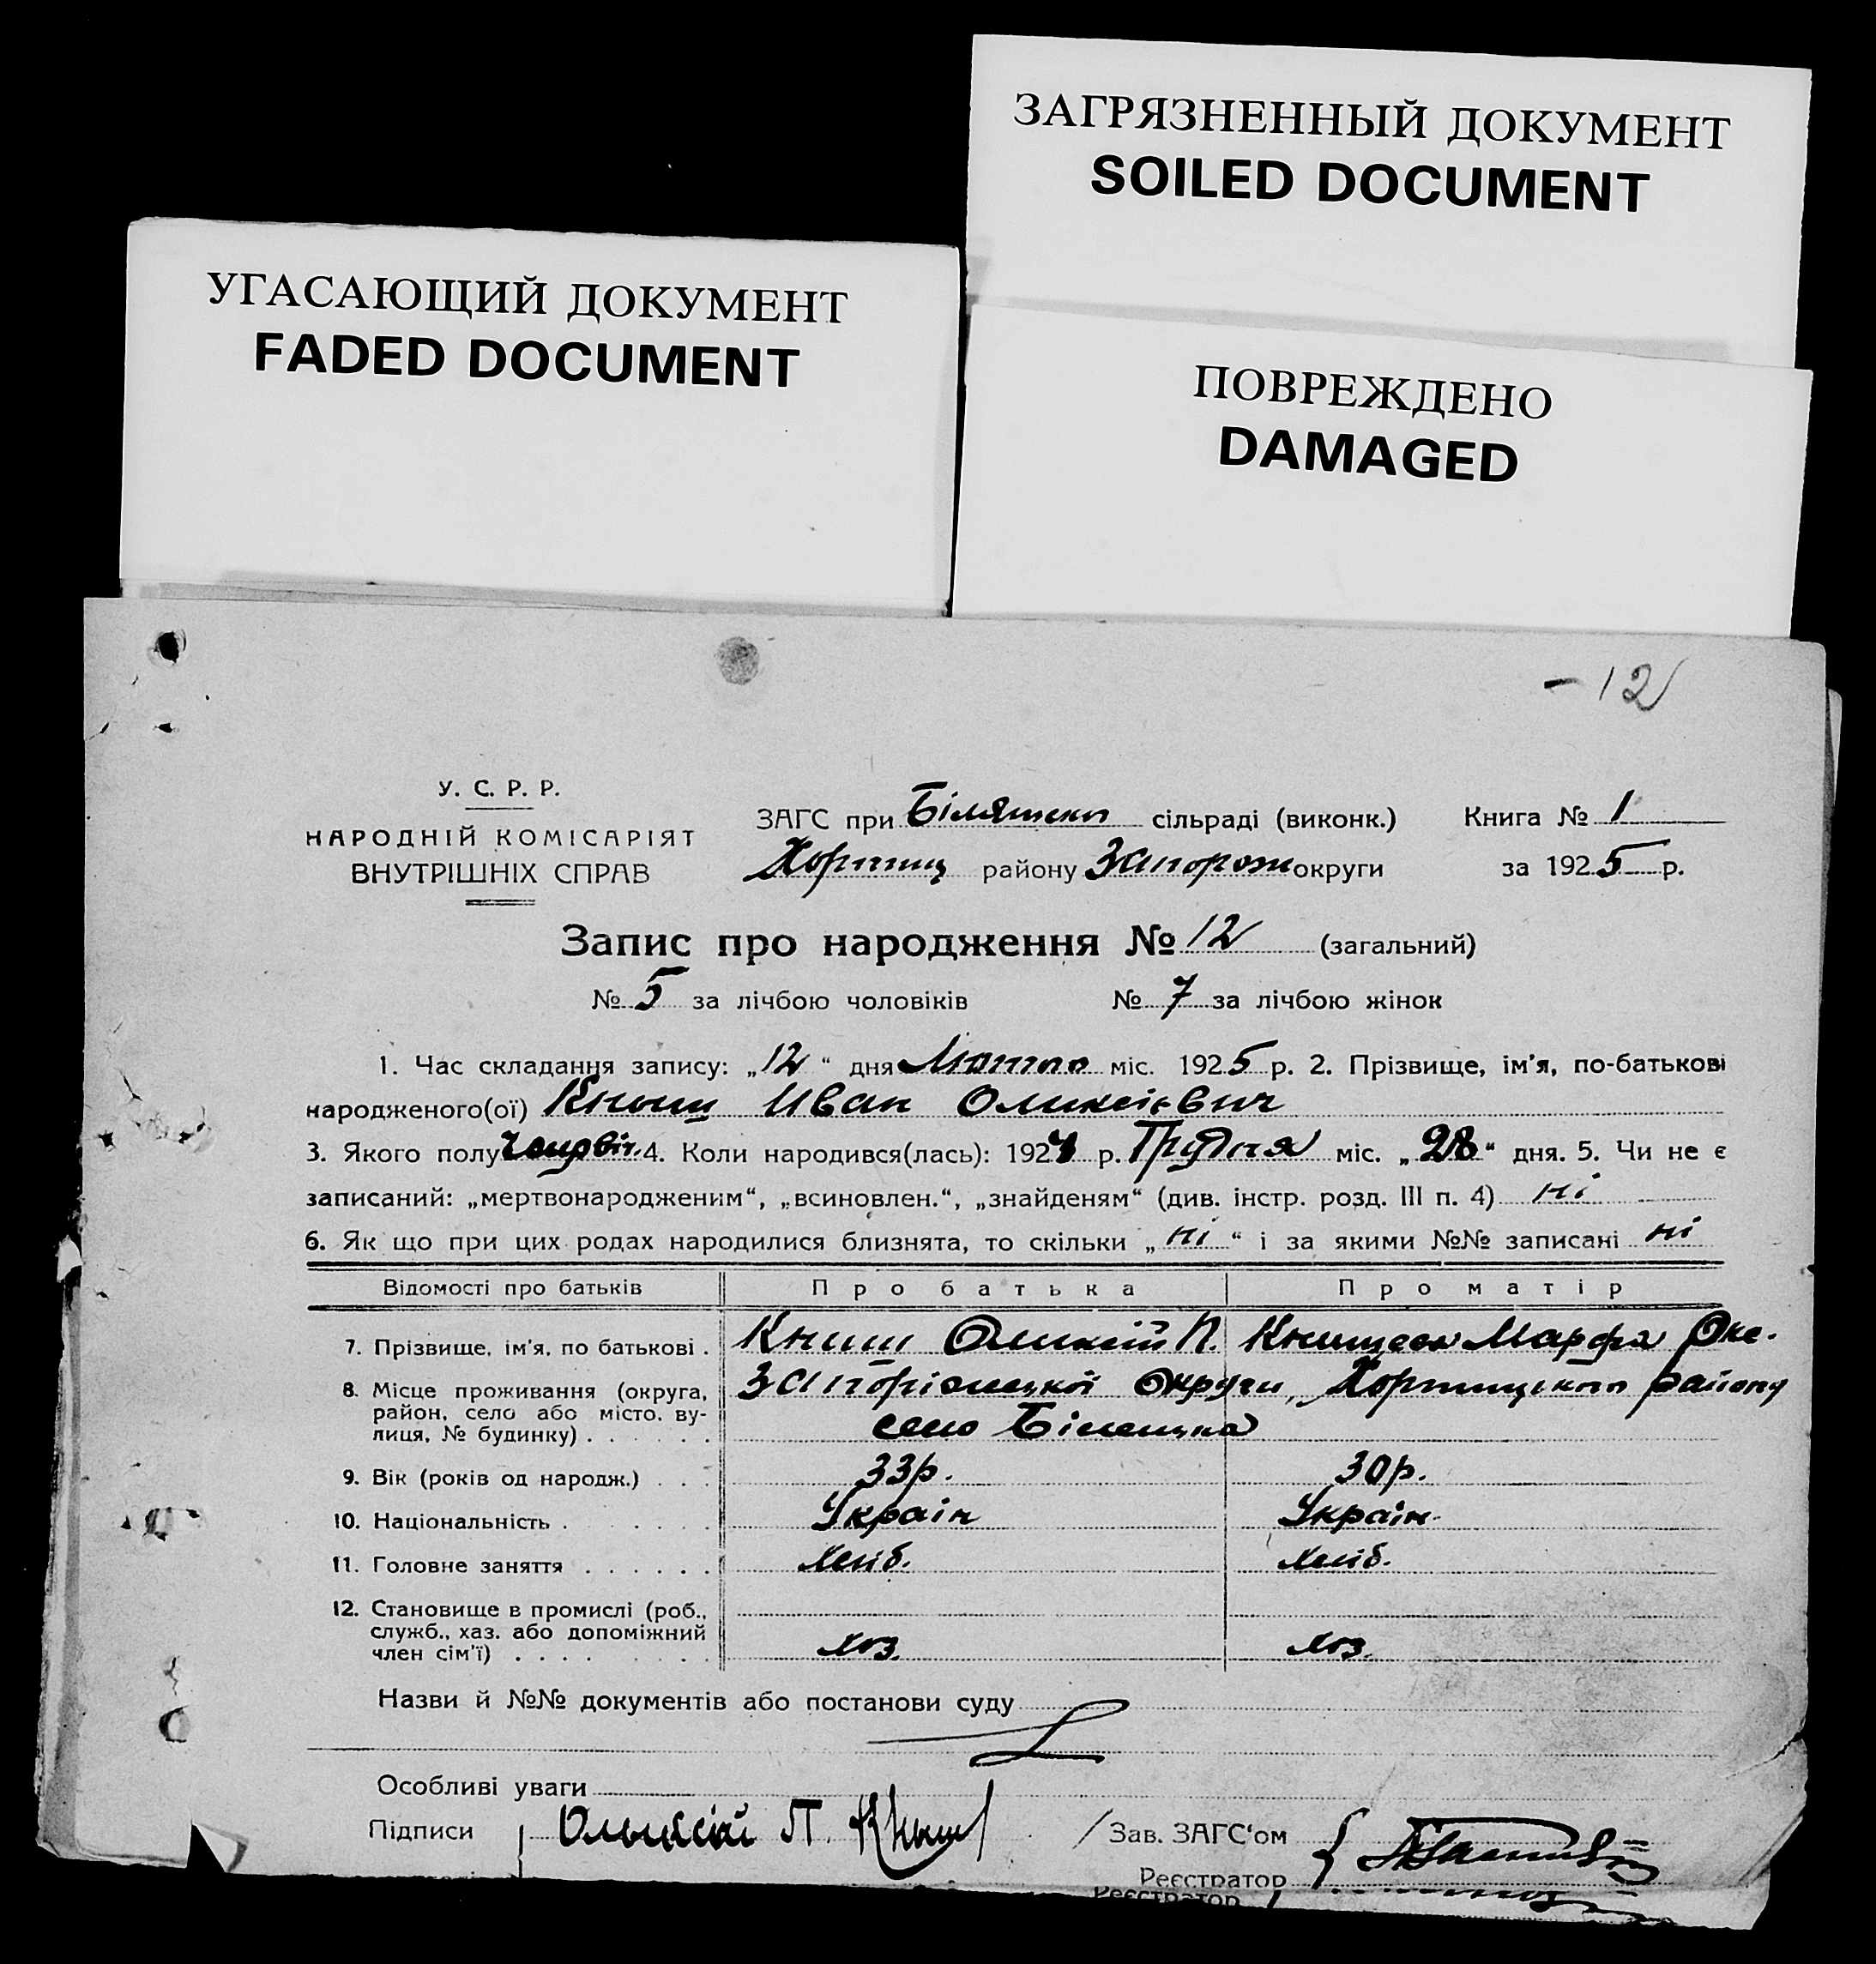 ЗАГРЯЗНЕННЫЙ ДОКУМЕНТ
SOILED DOCUMENT
УГАСАЮЩИЙ ДОКУМЕНТ
FADED DOCUMENT
ПОВРЕЖДЕНО
DAMAGED
- 12
У. С. Р. Р.
НАРОДНІЙ КОМІСАРІЯТ
ВНУТРІШНІХ СПРАВ
ЗАГС при сільраді (виконк.) Книга № 1
Хортиц району Запорож округи за 1925 р.
Запис про народження № 12 (загальний)
№ 5 за лічбою чоловіків № 7 за лічбою жінок
1. Час складання запису: „12“ дня Лютого міс. 1925 р. 2. Прізвище, ім'я, по-батькові
народженого(ої) Кныш Иван Олексієвич
3. Якого полу 4. Коли народився(лась): 1924 р. Грудня міс. „28“ дня. 5. Чи не є
записаний: „мертвонародженим“, „всиновлен.“, „знайденям“ (див. інстр. розд. III п. 4) ні
6. Як що при цих родах народилися близнята, то скільки „ні“ і за якими №№ записані ні
Відомості про батьків Про батька Про матір
7. Прізвище, ім'я, по батькові . Книш Олексій П. Марфа Оке.
8. Місце проживання (округа, район, село або місто, вулиця, № будинку) . . . . . . Запоріжецкої Округи, Хортицького району
село
9. Вік (років од народж.) . . . 33р. 30р.
10. Національність . . . . . Україн Україн
11. Головне заняття . . . . . . Хліб. Хліб.
12. Становище в промислі (роб.,
служб., хаз. або допоміжний
член сім'ї) . . . . . . . . хоз. хоз.
Назви й №№ документів або постанови суду
Особливі уваги
Підписи П. Кныш Зав. ЗАГС'ом
Реєстратор
Реєстратор